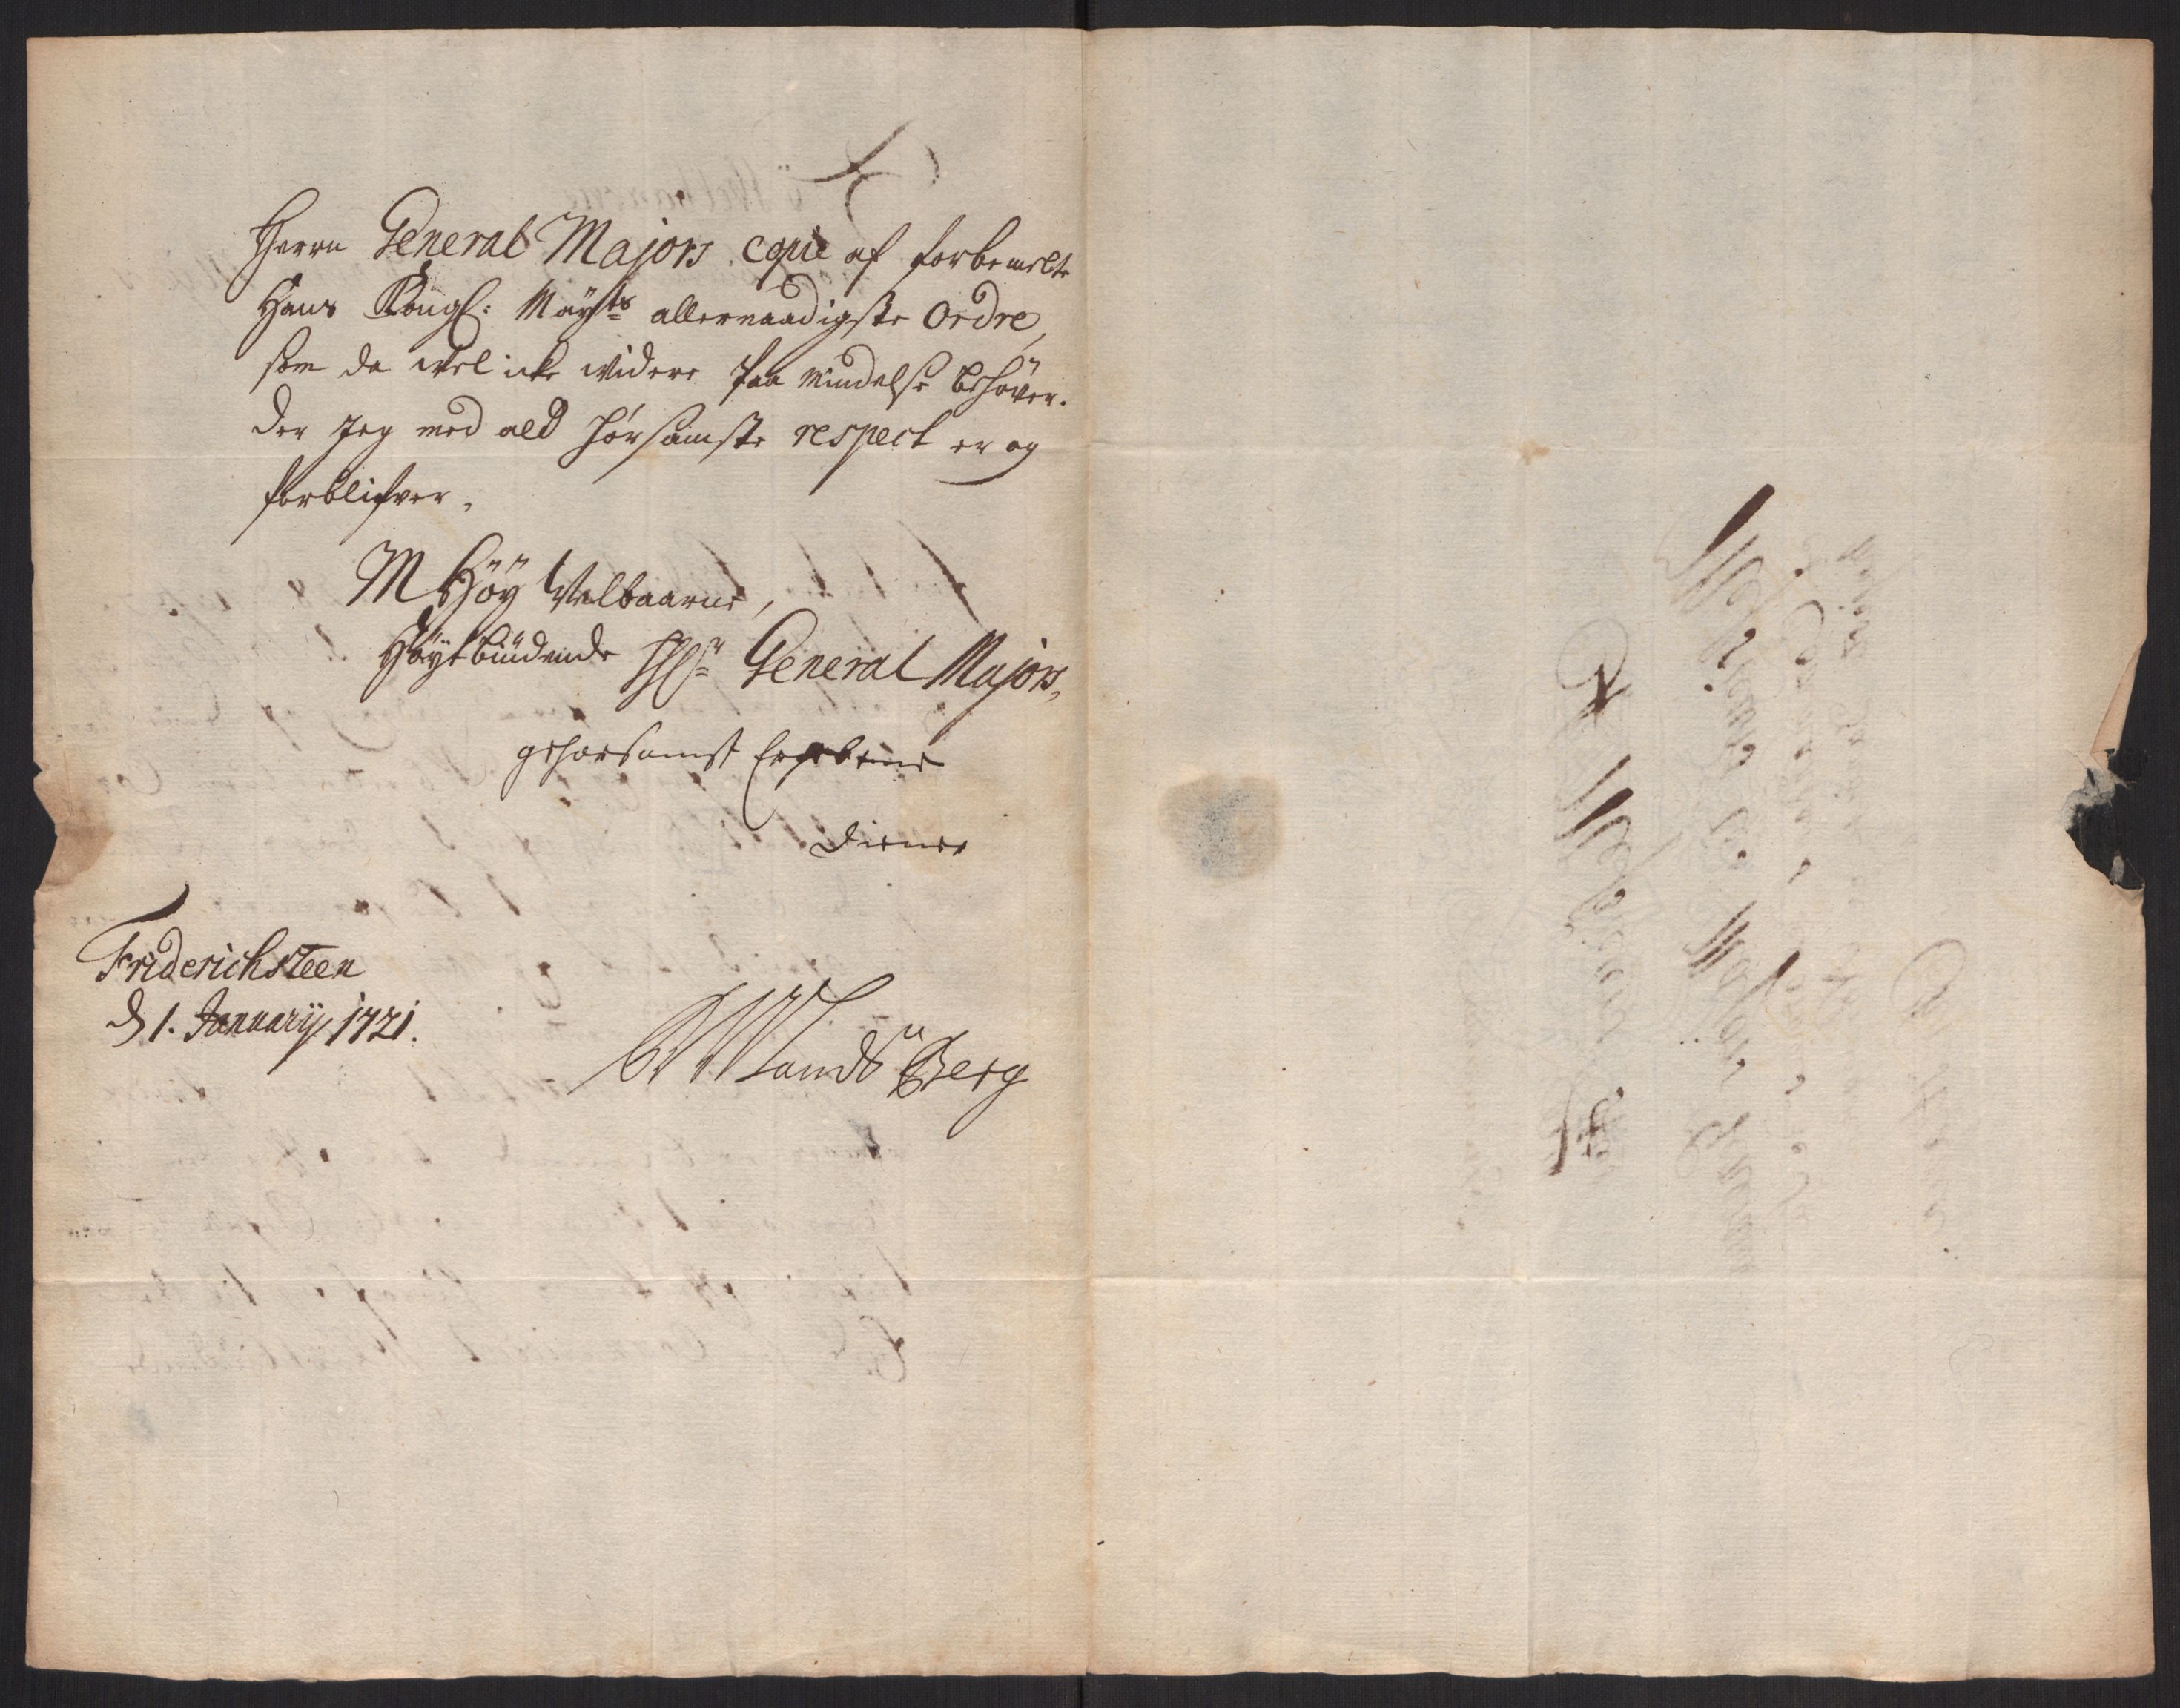 Herrn General Majors copie af forbemelte
Hans Kongl: Mayts allernaadigste Ordre,
som da vel icke videre Paa mindelse behöver.
der Jeg med ald hörsamste respect er og
forblifver,
Höy Velbaarne,
Höytbiüdende Hr General Majors,
gehorsamst Ergebene
Diener
Friderichsteen
d 1. January 1721.
Landsberg